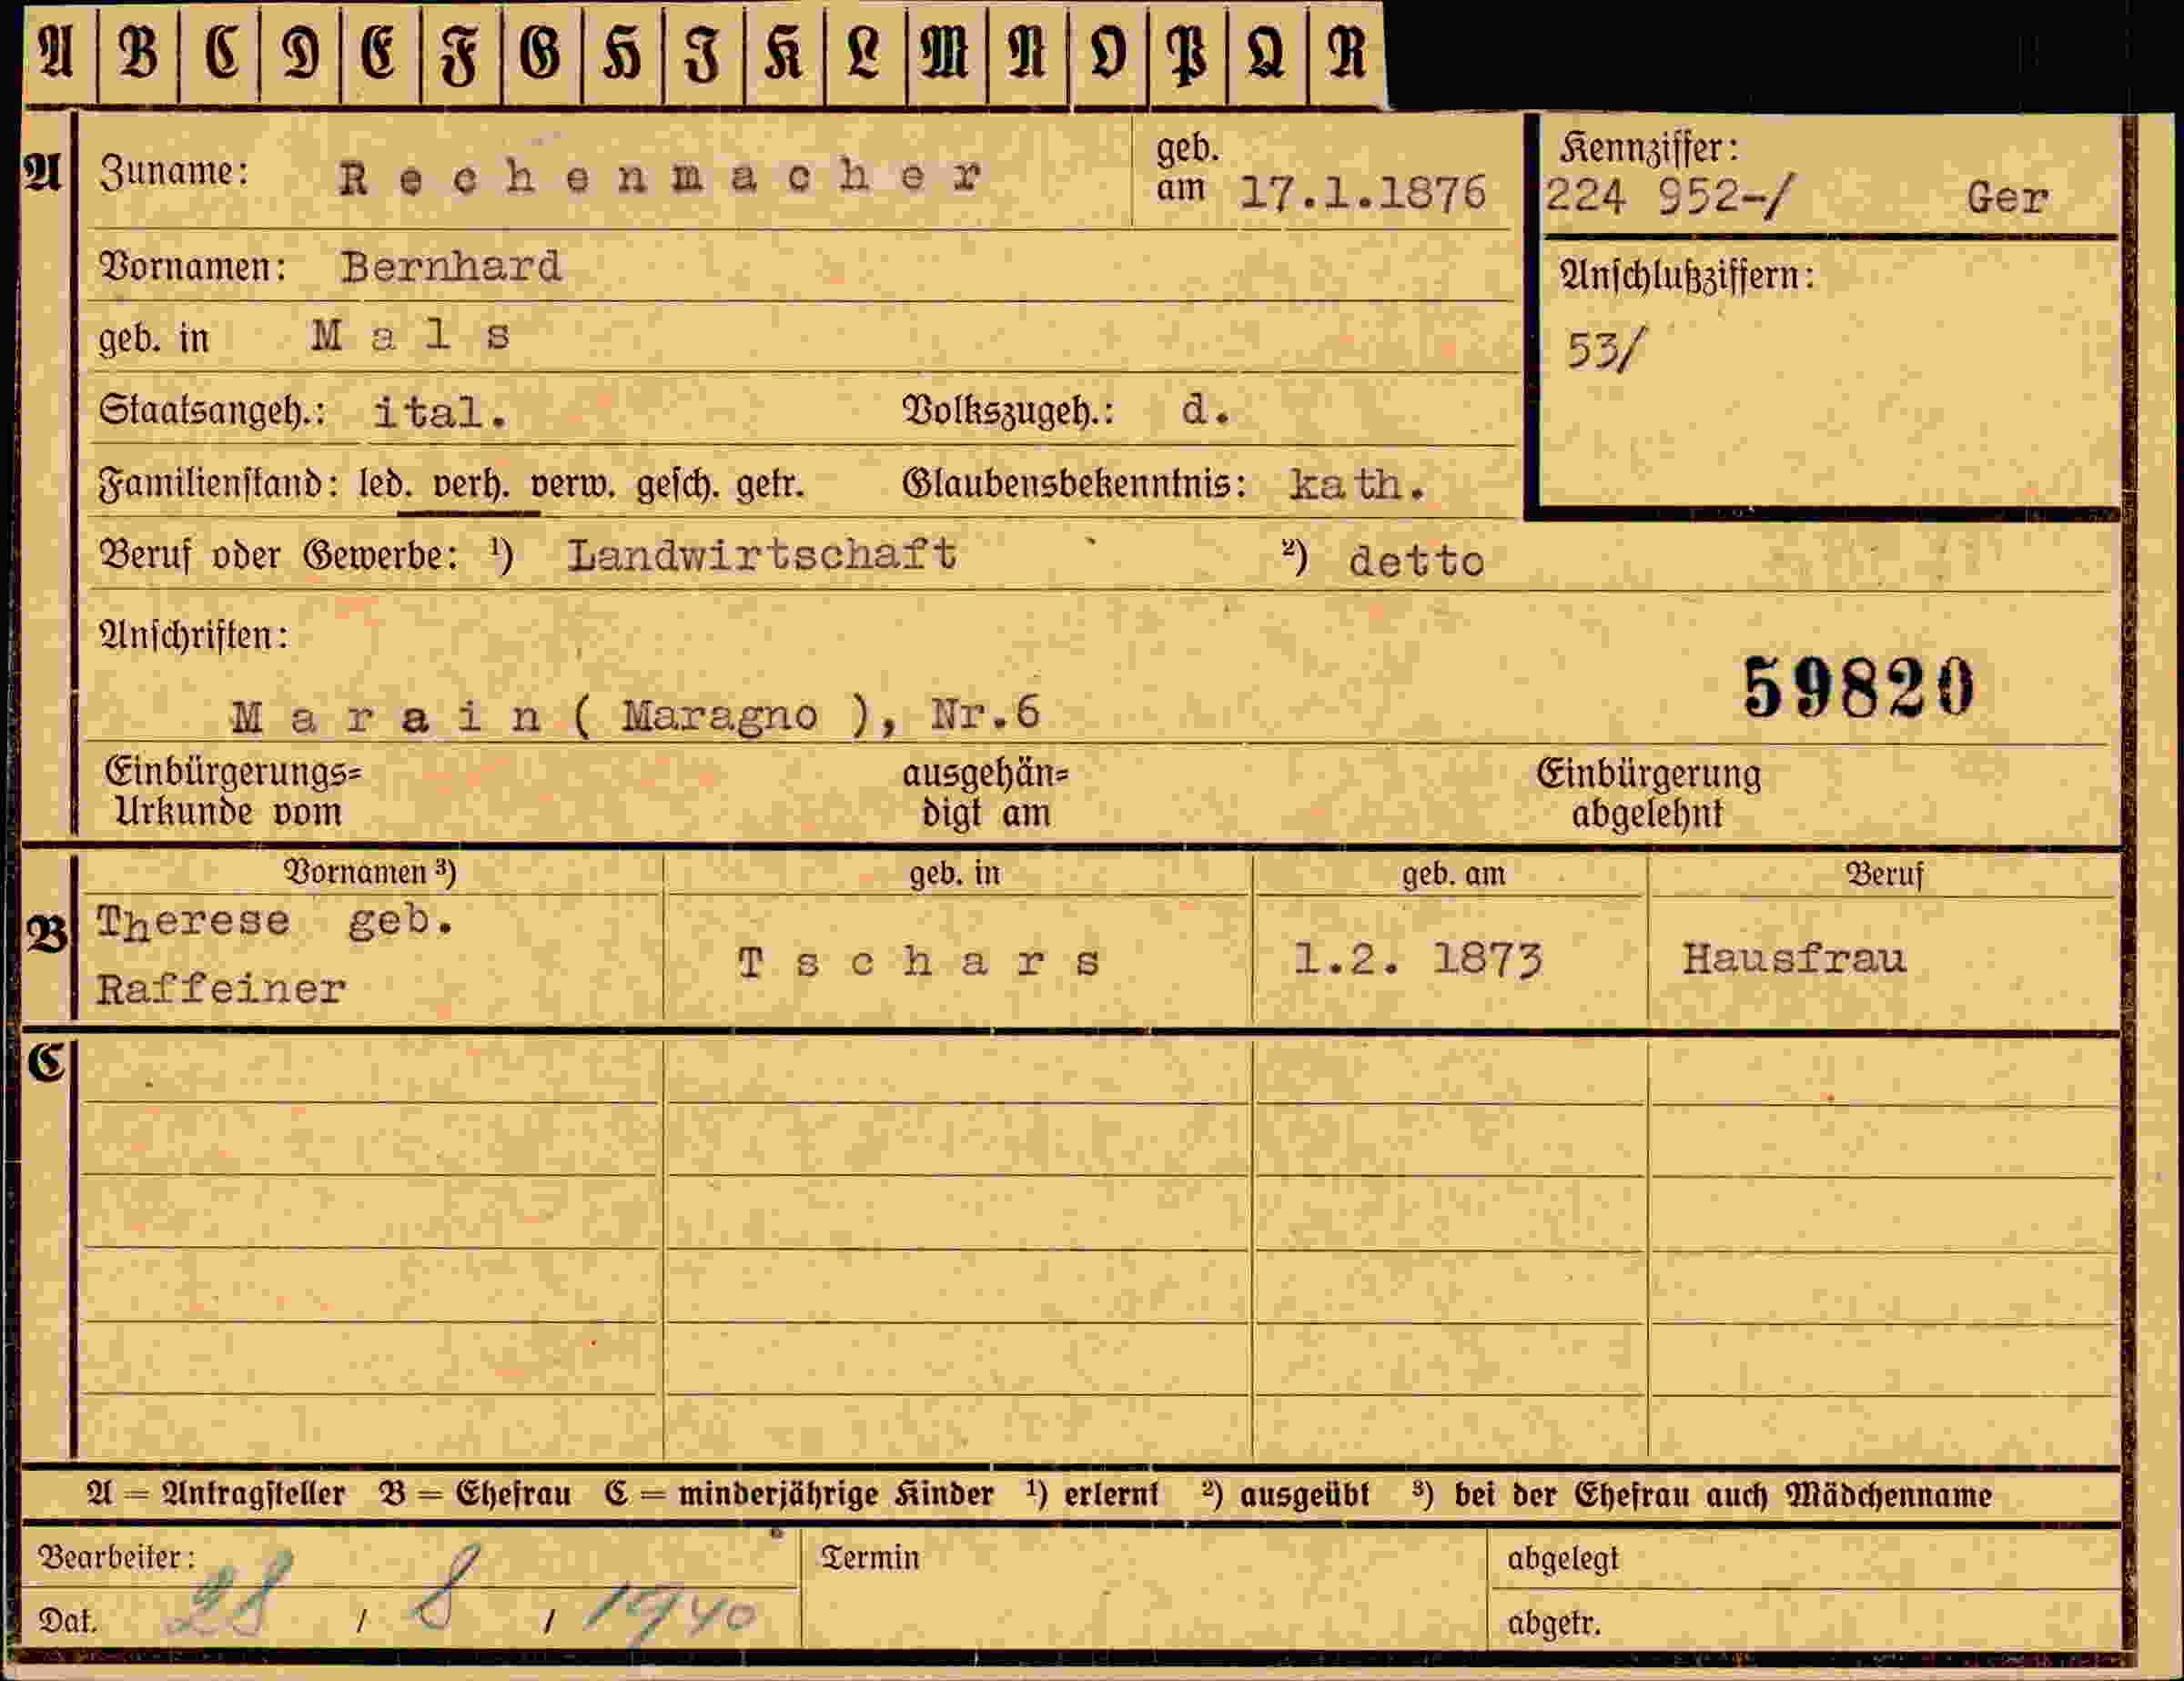 A B C D E F G H J K L M N O P Q R
A Zuname: Rechenmacher geb. am 17.1.1876 Kennziffer: 224 952-/ Ger
Vornamen: Bernhard Anschlußziffern:
geb. in Mals 53/
Staatsangeh.: ital. Volkszugeh.: d.
Familienstand: led. verh. verw. gesch. getr. Glaubensbekenntnis: kath.
Beruf oder Gewerbe: ¹) Landwirtschaft ²) detto
Anschriften:
59820
Marain ( Maragno ), Nr.6
Einbürgerungs= ausgehän= Einbürgerung
Urkunde vom digt am abgelehnt
Vornamen ³) geb. in geb. am Beruf
B Therese geb.
Raffeiner Tschars 1.2. 1873 Hausfrau
C
A = Antragsteller B = Ehefrau C = minderjährige Kinder ¹) erlernt ²) ausgeübt ³) bei der Ehefrau auch Mädchenname
Bearbeiter: Termin abgelegt
Dat. 28 / 8 / 1940 abgetr.